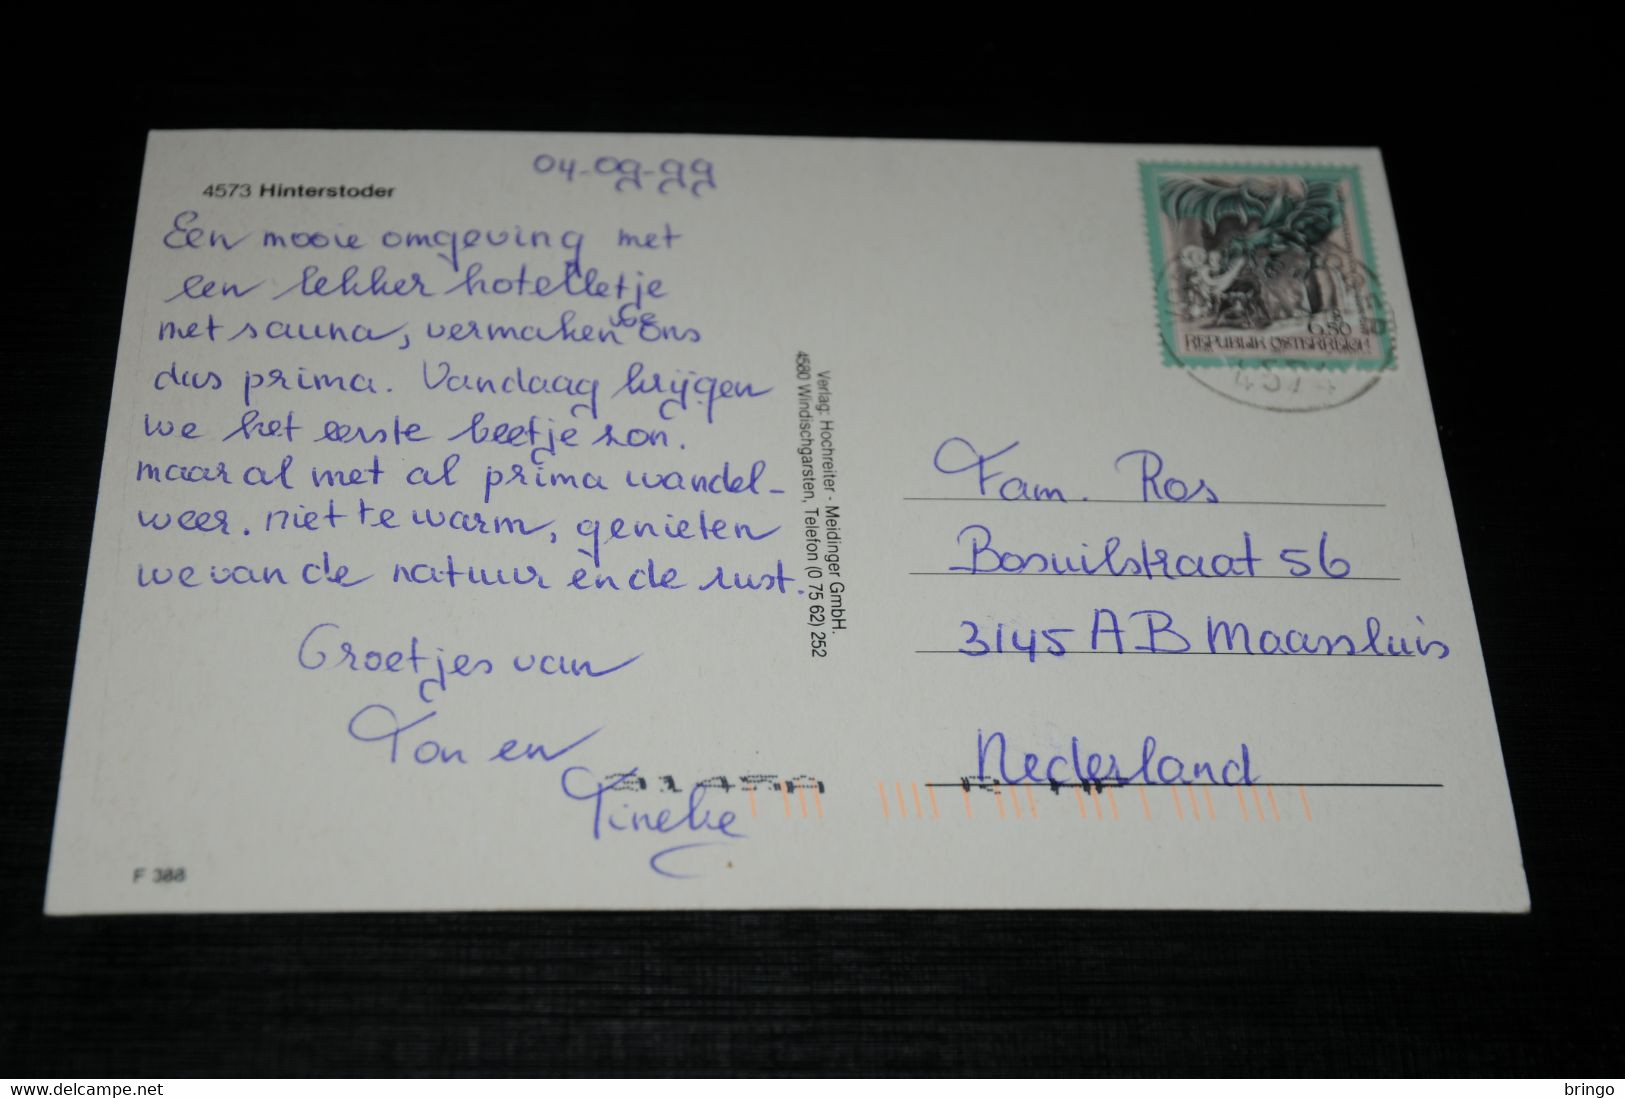 04-09-99
4573 Hinterstoder
Een mooie omgeving met
een lekker hotelletje
met sauna, vermaken we ons
dus prima. Vandaag krijgen
we het eerste beetje zon.
maar al met al prima wandel-
weer. niet te warm, genieten
we van de natuur en de rust.
Groetjes van
Ton en
Tineke
F 388
Verlag: Hochreiter - Meidinger GmbH.
4580 Windischgarsten, Telefon (0 75 62) 252
6.50
REPUBLIK ÖSTERREICH
Fam. Ros
Bosuilstraat 56
3145 AB Maassluis
Nederland
delcampe.net
bringo